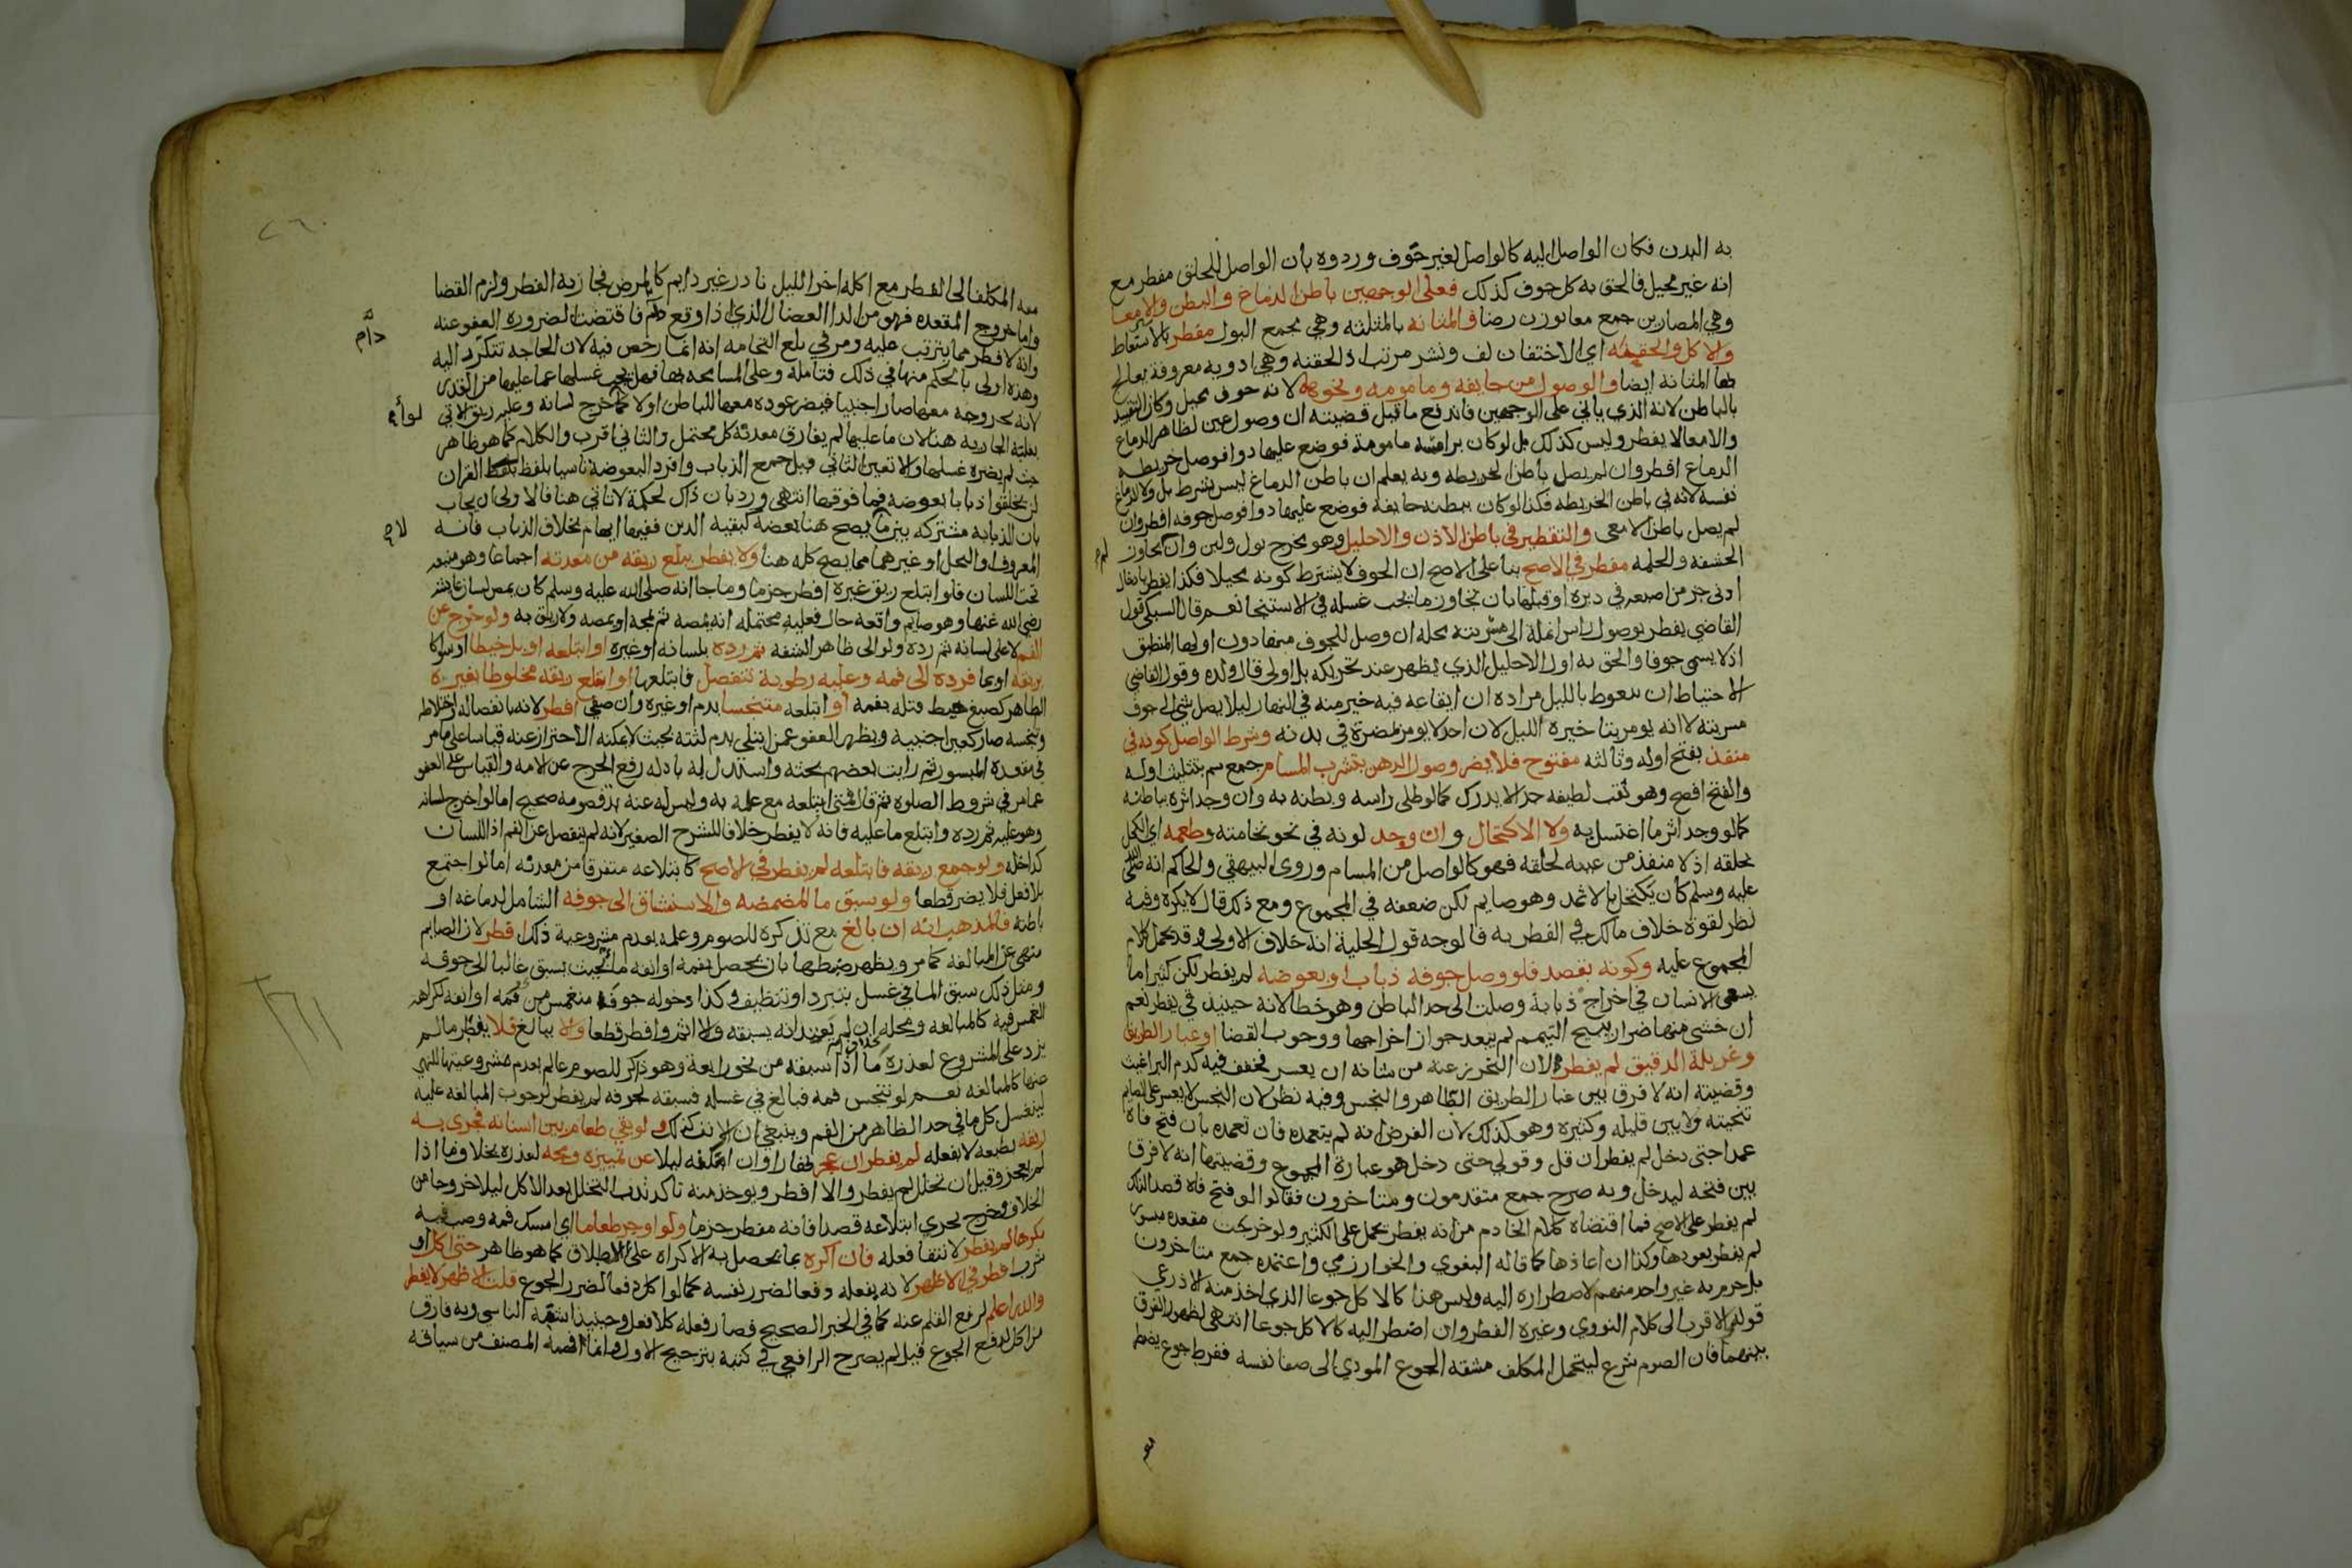 به البدن فكان الواصل اليه كالواصل لغير جوف وردوه بأن الواصل للحلق مفطر مع
انه غير محيل فالحق به كل جوف كذلك فعلى الوجهين باطن الدماغ والبطن والامعا
وهي المصارين جمع معا بوزن رضا والمثانه بالمثلثه وهي مجمع البول مفطر بالاستعاط
والاكل والحقنه اي الاحتقان لف ونشر مرتب اذ الحقنه وهي ادويه معروفة يعالج
بها المثانة ايضا والوصول من جايفه ومامومه ونحوها لانه جوف محيل وكان التقييد
بالباطن لانه الذي ياتي على الوجهين فاندفع ما قيل قضيته ان وصول عين لظاهر الدماغ
والامعا لا يفطر وليس كذلك بل لو كان براسه مامومة فوضع عليها دوا فوصل خريطه
الدماغ افطر وان لم يصل باطن الخريطه وبه يعلم ان باطن الدماغ ليس بشرط بل ولا الدماغ
نفسه لانه في باطن الخريطه فكذا لو كان ببطنه جايفه فوضع عليها دوا فوصل جوفه افطر وان
لم يصل باطن الامعى والتقطير في باطن الاذن والاحليل وهو مخرج بول ولبن وان لم يجاوز
الحشفه والحلمه مفطر في الاصح بنا على الاصح ان الجوف لا يشترط كونه محيلا فكذا يفطر بادخال
ادنى جز من اصبعه في دبره او قبلها بان تجاوز ما يجب غسله في الاستنجا نعم قال السبكي قول
القاضي يفطر بوصول راس انملة الى مسربته محله ان وصل للمجوف منها دون اولها المنطبق
اذ لا يسمى جوفا والحق به اول الاحليل الذي يظهر عند تحريكه بل اولى قال ولده وقول القاضي
الاحتياط ان يتغوط بالليل مراده ان ايقاعه فيه خير منه في النهار ليلا يصل شي الى جوف
مسربته لا انه يومر بتاخيره الليل لان احدا لا يومر بمضرة في بدنه وشرط الواصل كونه في
منفذ بفتح اوله وثالثه مفتوح فلا يضر وصول الدهن بتشرب المسام جمع سم بتثليث اوله
والفتح افصح وهو ثقب لطيفه جدا لا يدرك كما لو طلى راسه وبطنه به وان وجد اثره بباطنه
كما لو وجد اثر ما اغتسل به ولا الاكتحال وان وجد لونه في نحو نخامته وطعمه اي الكحل
بحلقه اذ لا منفذ من عينه لحلقه فهو كالواصل من المسام وروى البيهقي والحاكم انه صلى الله
عليه وسلم كان يكتحل بالاثمد وهو صايم لكن ضعفه في المجموع ومع ذلك قال لا يكره وفيه
نظر لقوة خلاف مالك في الفطر به فالوجه قول الحلية انه خلاف الاولى وقد يحمل كلام
المجموع عليه وكونه بقصد فلو وصل جوفه ذباب او بعوضه لم يفطر لكن كثيرا ما
يسعى الانسان في اخراج ذبابة وصلت الى حد الباطن وهو خطا لانه حينيذ قي يفطر نعم
ان خشي منها ضررا يبيح التيمم لم يبعد جواز اخراجها ووجوب القضا او غبار الطريق
وغربلة الدقيق لم يفطر لان التحرز عنه من شانه ان يعسر فخفف فيه كدم البراغيث
وقضيته انه لا فرق بين غبار الطريق الطاهر والنجس وفيه نظر لان النجس لا يعسر على الصايم
تجنبه ولا بين قليله وكثيره وهو كذلك لان الفرض انه لم يتعمده فان تعمده بان فتح فاه
عمدا حتى دخل لم يفطر ان قل وقولي حتى دخل هو عبارة المجموع وقضيتها انه لا فرق
بين فتحه ليدخل وبه صرح جمع متقدمون ومتاخرون فقالوا لو فتح فاه قصدا لذلك
لم يفطر على الاصح فما اقتضاه كلام الخادم من انه يفطر يحمل على الكثير ولو خرجت مقعده مبسور
لم يفطر بعودها وكذا ان اعادها كما قاله البغوي والخوارزمي واعتمده جمع متاخرون
بل جزم به غير واحد منهم لاضطراره اليه وليس هذا كالاكل جوعا الذي اخذ منه الاذرعي
قوله الاقرب الى كلام النووي وغيره الفطر وان اضطر اليه كالاكل جوعا انتهى لظهور الفرق
بينهما فان الصوم شرع ليتحمل المكلف مشقه الجوع المودي الى صفا نفسه ففرط جوع يضطر
معه المكلف الى الفطر مع اكله اخر الليل نادر غير دايم كالمرض فجاز به الفطر ولزم القضا
واما خروج المقعده فهو من الدا العضال الذي اذا وقع دام فاقتضت الضروره العفو عنه
وانه لا فطر مما يترتب عليه ومر في بلع النخامه انه انما رخص فيه لان الحاجه تتكرر اليه
وهذه اولى بالحكم منها في ذلك فتامله وعلى المسامحه بها فهل يجب غسلها عما عليها من القذر
لانه بخروجه معها صار اجنبيا فيضر عوده معها للباطن اولا كما لو اخرج لسانه وعليه ريق الاتي
بعلته الجاريه هنا لان ما عليها لم يفارق معدنه كل محتمل والثاني اقرب والكلام كما هو ظاهر
حيث لم يضره غسلها والا تعين الثاني قيل جمع الذباب وافرد البعوضة تاسيا بلفظ القران
لن يخلقوا ذبابا بعوضه فما فوقها انتهى ورد بان ذاك لحكمة لا تاتي هنا فالاولى ان يجاب
بان الذبابه مشتركه بين ما لا يصح هنا بعضه كبقيه الدين ففيها ايهام بخلاف الذباب فانه
المعروف او النحل او غيرهما مما يصح كله هنا ولا يفطر ببلع ريقه من معدنه اجماعا وهو منبعه
تحت اللسان فلو ابتلع ريق غيره افطر جزما وما جا انه صلى الله عليه وسلم كان يمص لسان عايشه
رضي الله عنها وهو صايم واقعه حال فعليه محتمله انه يمصه ثم يمجه او يمصه ولا ريق به ولو خرج عن
الفم لا على لسانه ثم رده ولو الى ظاهر الشفه ثم رده بلسانه او غيره او ابتلعه او بل خيطا او سواكا
بريقه او بما فرده الى فمه وعليه رطوبة تنفصل فابتلعها او ابتلع ريقه مخلوطا بغيره
الطاهر كصبغ خيط فتله بفمه او ابتلعه متنجسا بدم او غيره وان صفي افطر لانه بانفصاله واختلاطه
وتنجسه صار كعين اجنبية ويظهر العفو عمن ابتلى بدم لثته بحيث لا يمكنه الاحتراز عنه قياسا على ما مر
في مقعدة المبسور ثم رايت بعضهم بحثه واستدل له بادله رفع الحرج عن الامه والقياس على العفو
عما مر في شروط الصلوه ثم قال فمتى ابتلعه مع علمه به وليس له عنه بد فصومه صحيح اما لو اخرج لسانه
وهو عليه ثم رده وابتلع ما عليه فانه لا يفطر خلافا للشرح الصغير لانه لم ينفصل عن الفم اذ اللسان
كداخله ولو جمع ريقه فابتلعه لم يفطر في الاصح كابتلاعه متفرقا من معدنه اما لو اجتمع
بلا فعل فلا يضر قطعا ولو سبق ما المضمضه والاستنشاق الى جوفه الشامل لدماغه او
باطنه فالمذهب انه ان بالغ مع تذكره للصوم وعلمه بعدم مشروعية ذلك افطر لان الصايم
منهى عن المبالغه كما مر ويظهر ضبطها بان يحصل بفمه او انفه ما بحيث يسبق غالبا الى جوفه
ومثل ذلك سبق الما في غسل تبرد او تنظيف وكذا دخوله جوف منغمس من فمه او انفه لكراهه
الغمس فيه كالمبالغه ومحله ان لم يعتد انه يسبقه والا اثم وافطر قطعا والا يبالغ فلا يفطر ما لم
يزد على المشروع لعذره بخلاف ما اذا سبقه من نحو رابعة وهو ذاكر للصوم عالم بعدم مشروعيتها للنهي
عنها كالمبالغه نعم لو تنجس فمه فبالغ في غسله فسبقه لجوفه لم يفطر لوجوب المبالغه عليه
لينغسل كل ما في حد الظاهر من الفم وينبغي ان الانف كذلك ولو بقي طعام بين اسنانه فجرى به
ريقه بطبعه لا بفعله لم يفطر ان عجز نهارا وان امكنه ليلا عن تمييزه ومجه لعذره بخلاف ما اذا
لم يعجز وقيل ان تخلل لم يفطر والا افطر ويوخذ منه تاكد ندب التخلل بعد الاكل ليلا خروجا من
الخلاف وخرج بجرى ابتلاعه قصدا فانه مفطر جزما ولو اوجر طعاما اي امسك فمه وصب فيه
مكرها لم يفطر لانتفا فعله فان اكره بما يحصل به الاكراه على الاطلاق كما هو ظاهر حتى اكل او
شرب افطر في الاظهر لانه يفعله دفعا لضرر نفسه كما لو اكل دفعا لضرر الجوع قلت الاظهر لا يفطر
والله اعلم لرفع القلم عنه كما في الخبر الصحيح فصار فعله كلا فعل وحينيذ اشبه الناسي وبه فارق
من اكل لدفع الجوع قيل لم يصرح الرافعي في كتبه بترجيح الاول وانما فهمه المصنف من سياقه